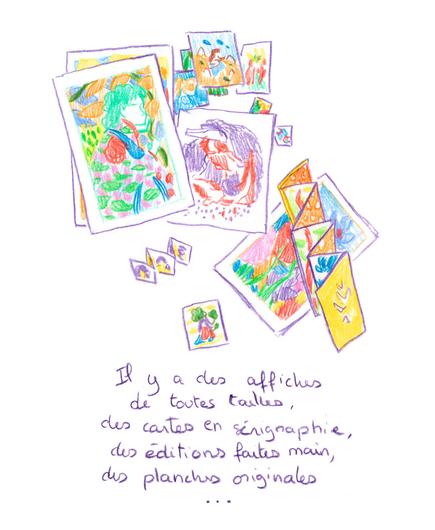 Il y a des affiches
de toutes tailles,
des cartes en sérigraphie,
des éditions faites main,
des planches originales
...